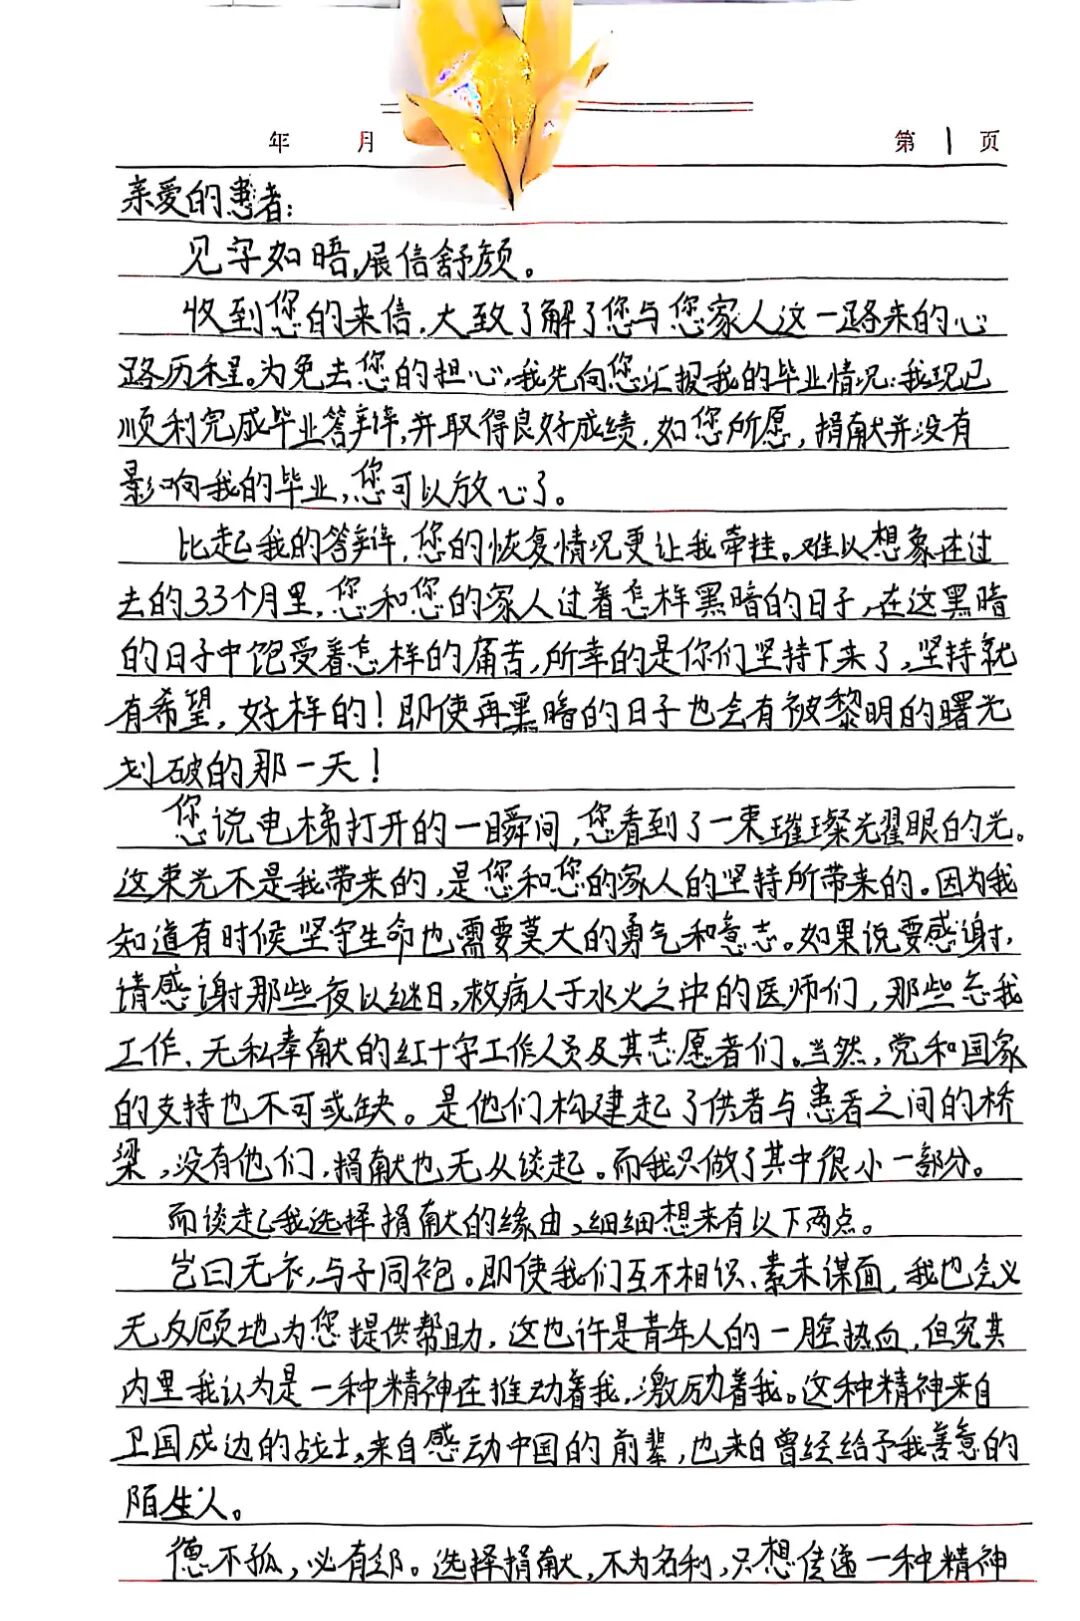 年 月 第 1 页
亲爱的患者:
见字如晤,展信舒颜。
收到您的来信,大致了解了您与您家人这一路来的心
路历程。为免去您的担心,我先向您汇报我的毕业情况:我现已
顺利完成毕业答辩,并取得良好成绩,如您所愿,捐献并没有
影响我的毕业,您可以放心了。
比起我的答辩,您的恢复情况更让我牵挂。难以想象在过
去的33个月里,您和您的家人过着怎样黑暗的日子,在这黑暗
的日子中饱受着怎样的痛苦,所幸的是你们坚持下来了,坚持就
有希望,好样的!即使再黑暗的日子也会有被黎明的曙光
划破的那一天!
您说电梯打开的一瞬间,您看到了一束璀璨光耀眼的光。
这束光不是我带来的,是您和您的家人的坚持所带来的。因为我
知道有时候坚守生命也需要莫大的勇气和意志。如果说要感谢,
请感谢那些夜以继日,救病人于水火之中的医师们,那些忘我
工作、无私奉献的红十字工作人员及其志愿者们。当然,党和国家
的支持也不可或缺。是他们构建起了供者与患者之间的桥
梁,没有他们,捐献也无从谈起。而我只做了其中很小一部分。
而谈起我选择捐献的缘由,细细想来有以下两点。
岂曰无衣,与子同袍。即使我们互不相识、素未谋面,我也会义
无反顾地为您提供帮助,这也许是青年人的一腔热血,但究其
内里我认为是一种精神在推动着我,激励着我。这种精神来自
卫国戍边的战士,来自感动中国的前辈,也来自曾经给予我善意的
陌生人。
德不孤,必有邻。选择捐献,不为名利,只想传递一种精神